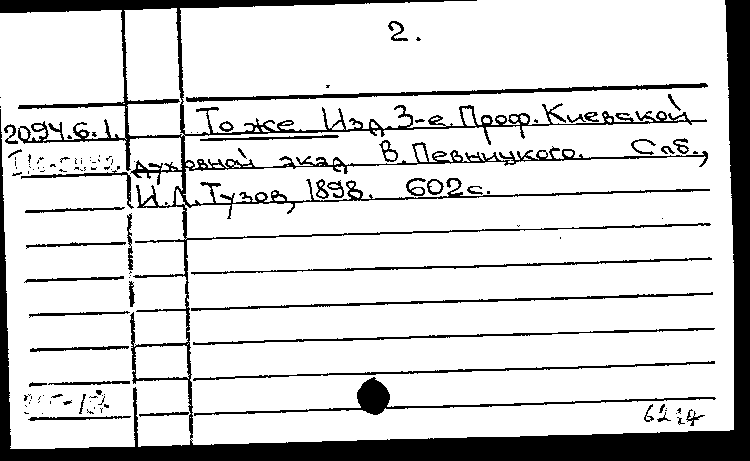 2.
2094.6.1. То же. Изд. 3-е. Проф. Киевской
духовной акад. В. Певницкого. Спб.,
И.Л. Тузов, 1898. 602с.